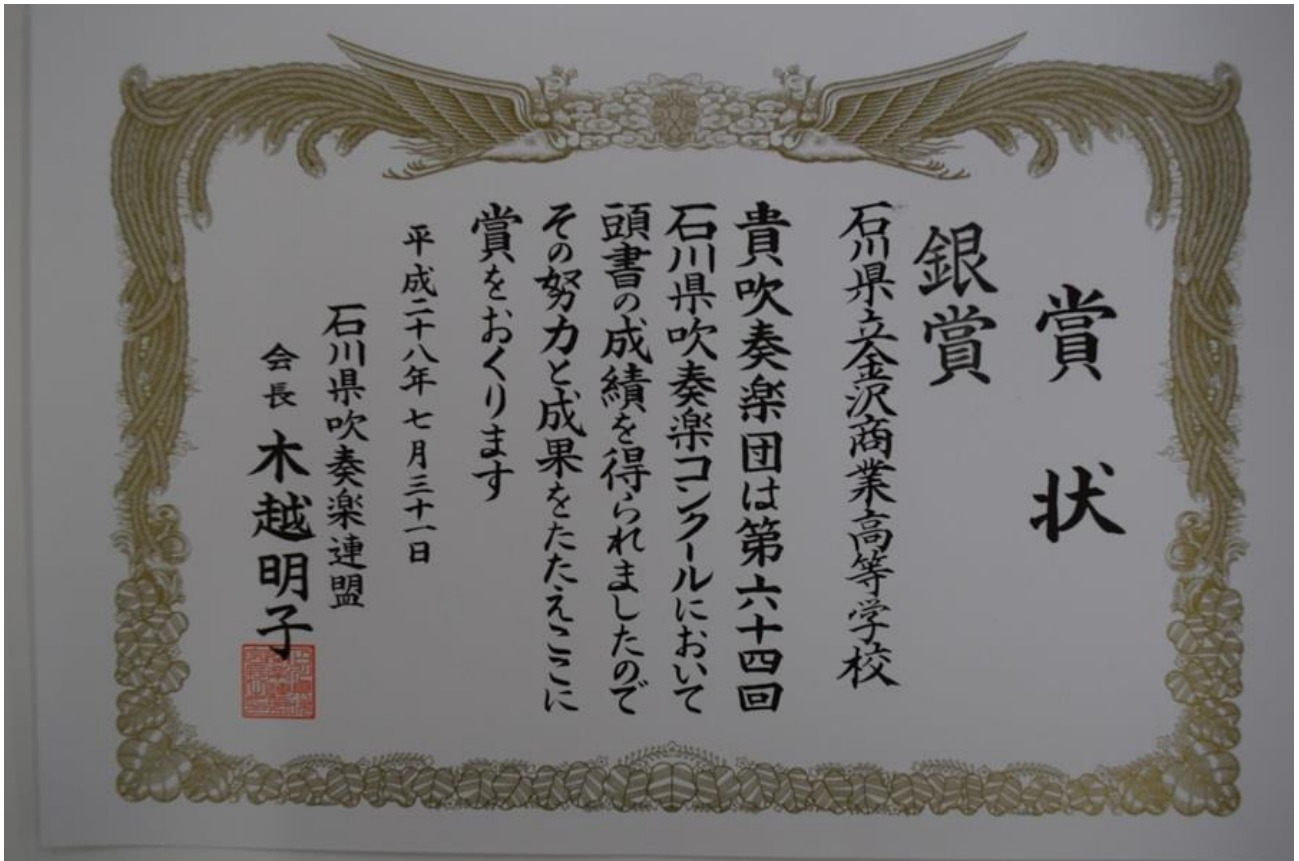 賞状
銀賞
石川県立金沢商業高等学校
貴吹奏楽団は第六十四回
石川県吹奏楽コンクールにおいて
頭書の成績を得られましたので
その努力と成果をたたえここに
賞をおくります
平成二十八年七月三十一日
石川県吹奏楽連盟
会長 木越明子